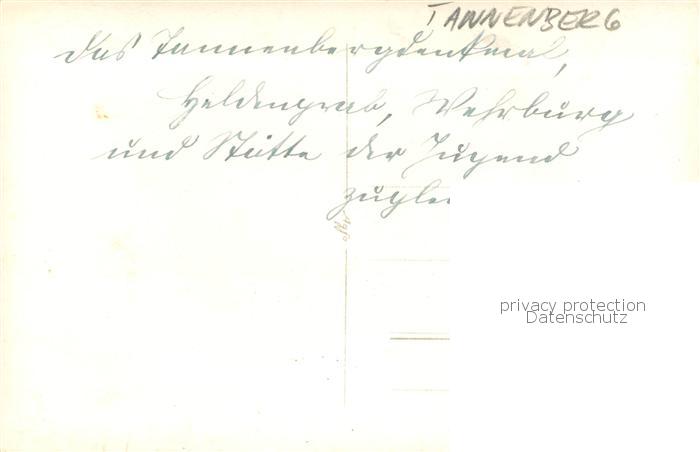 TANNENBERG
Das Tannenbergdenkmal,
Heldengrab, Wehrburg
und Stätte der Jugend
zuglei
Agfa
privacy protection
Datenschutz